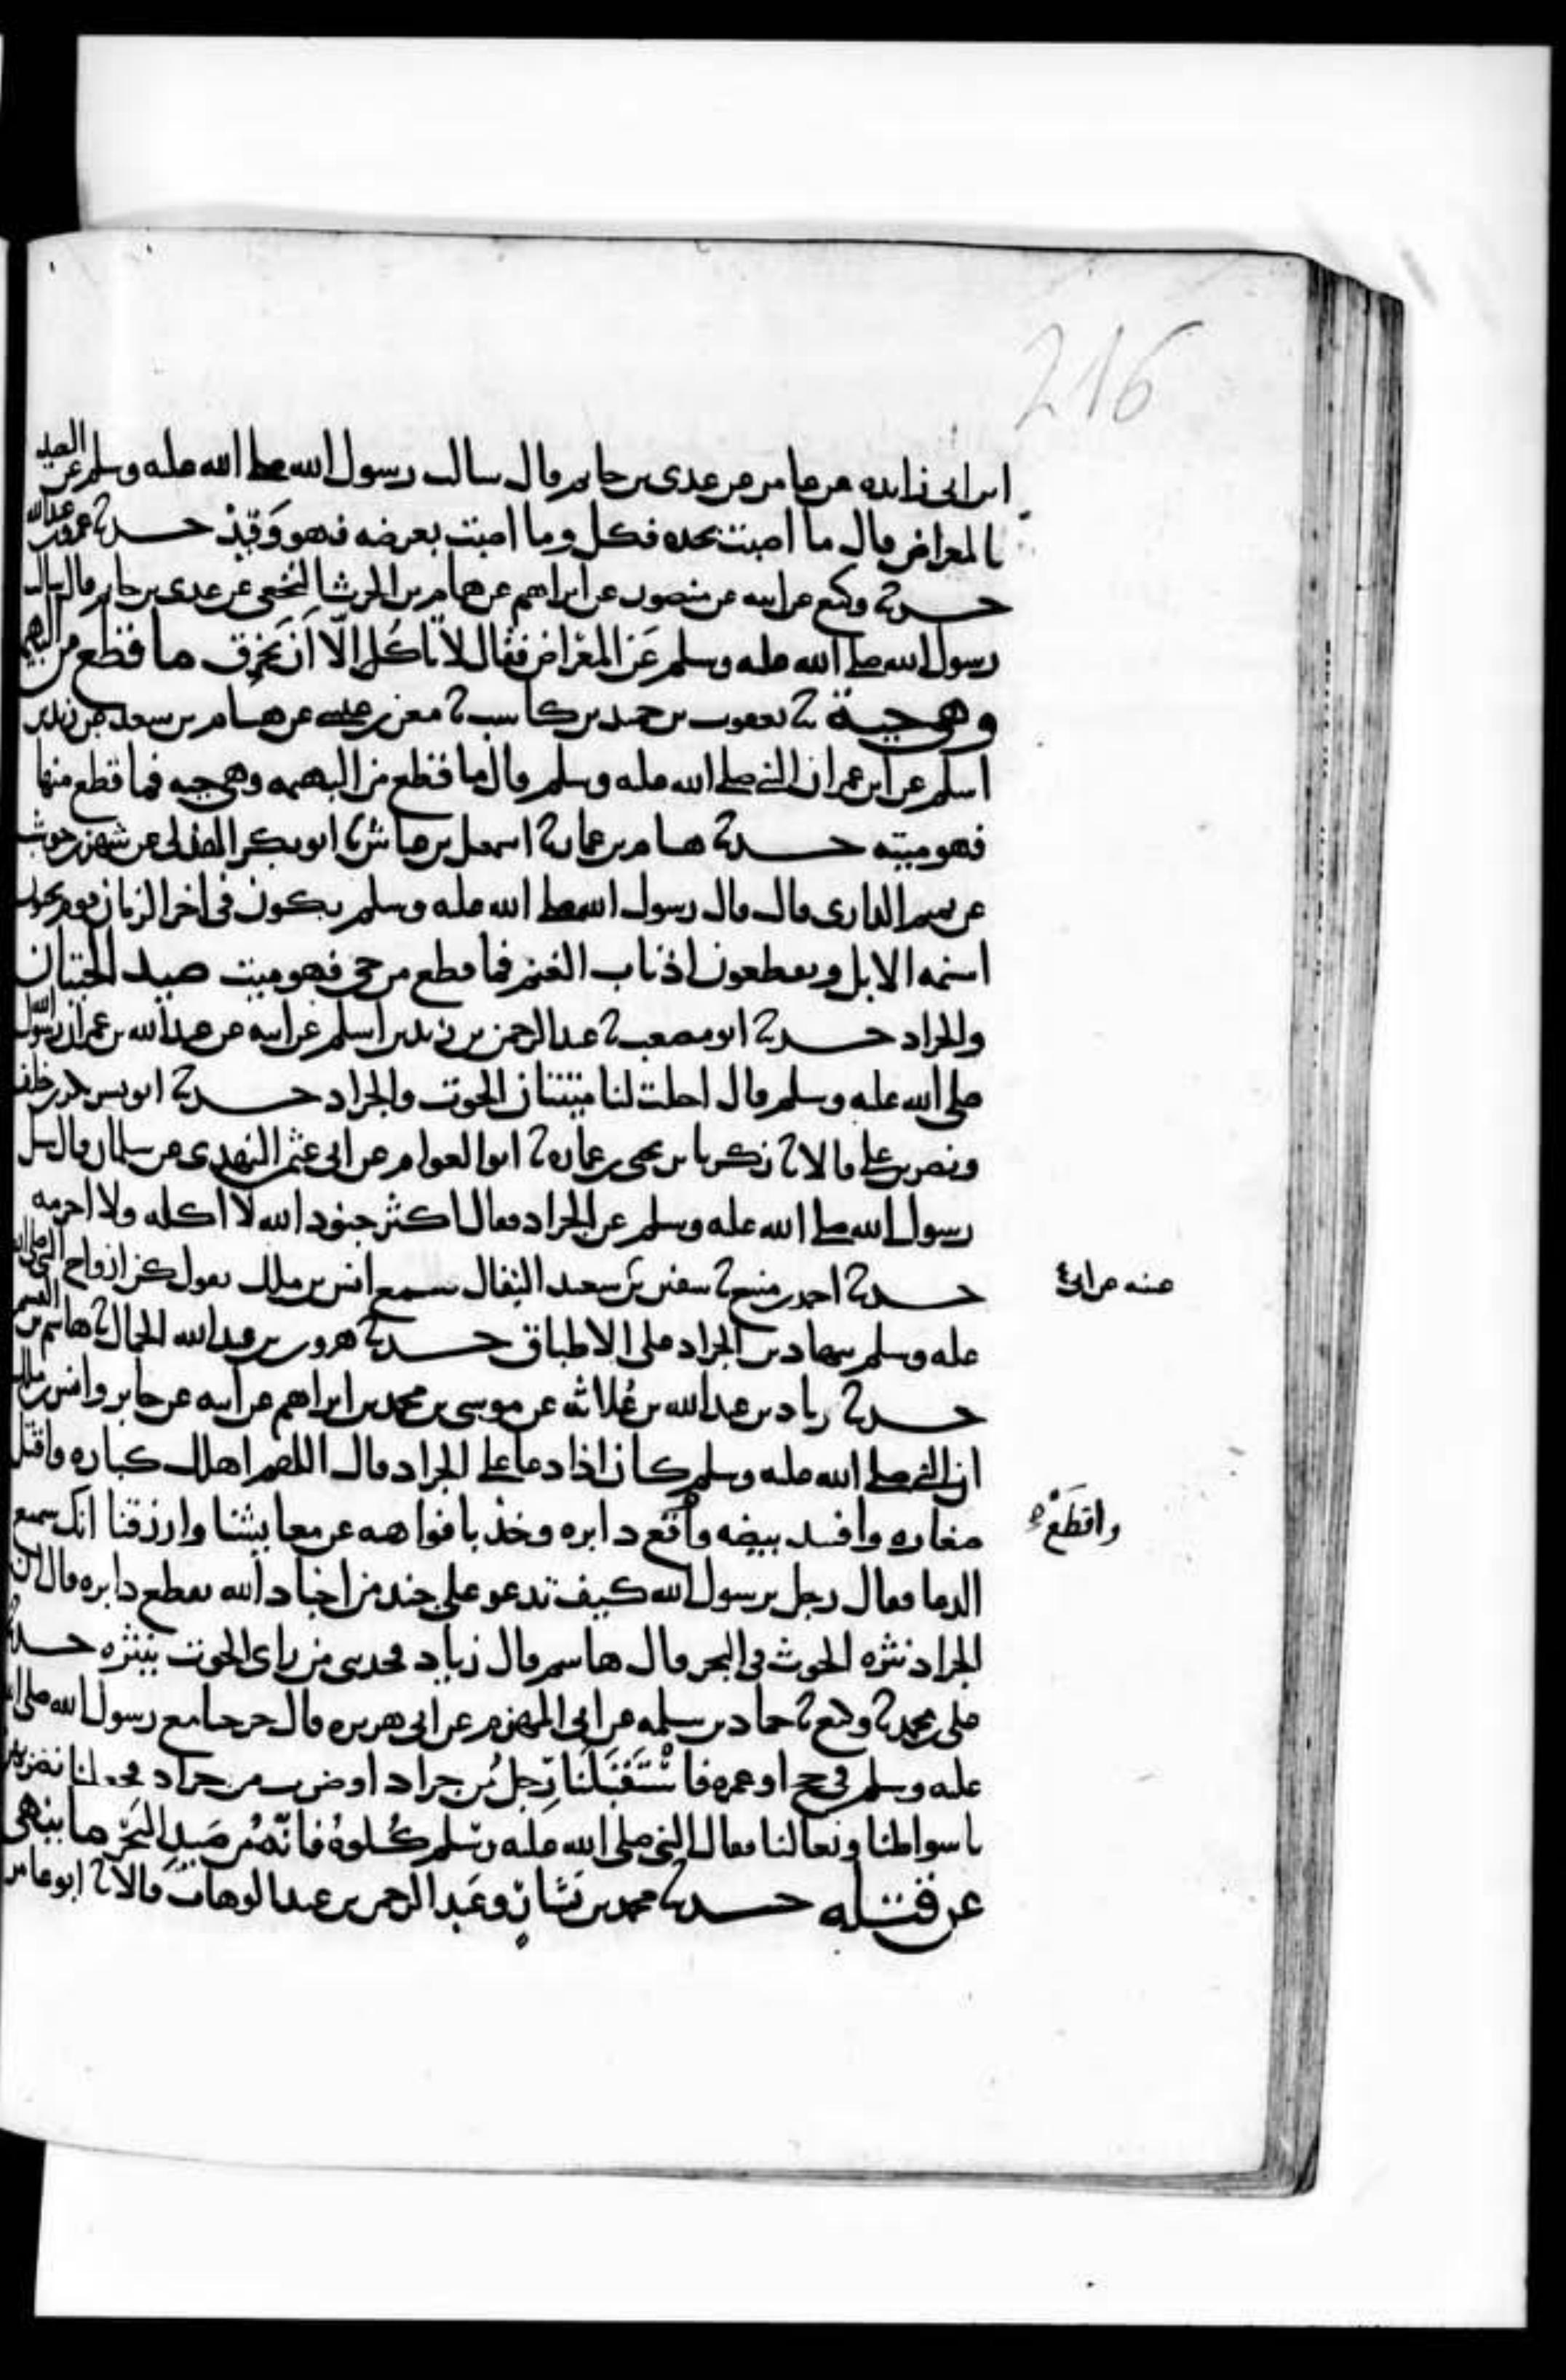 216
ابن ابى زايده عن عامر عن عدى بن حاتم قال سالت رسول الله صلى الله عليه وسلم عن الصيد
بالمعراض قال ما اصبت بحده فكل وما اصبت بعرضه فهو وَقِيْذ حدثنا عمرو بن عبد الله
حدثنا وكيع عن ابيه عن منصور عن ابراهيم عن همام بن الحرث النخعى عن عدى بن حاتم قال سالت
رسول الله صلى الله عليه وسلم عَن المعْراض فقال لا تاكُل الّا اَن يَخزِق ما قطع من البهيمة
وهى حية ثنا يعقوب بن حميد بن كاسب ثنا معن بن عيسى عن هشام بن سعد عن زيد بن
اسلم عن ابن عمر ان النبى صلى الله عليه وسلم قال ما قطع من البهيمه وهى حيه فما قطع منها
فهو ميتته حدثنا هشام بن عمار ثنا اسمعيل بن عياش ثنا ابو بكر الهذلى عن شهر بن حوشب
عن تميم الدارى قال قال رسول الله صلى الله عليه وسلم يكون فى اخر الزمان قوم يجبون
اسنمه الابل ويقطعون اذناب الغنم فما قطع من حى فهو ميت صيد الحيتان
والجراد حدثنا ابو مصعب ثنا عبد الرحمن بن زيد بن اسلم عن ابيه عن عبد الله بن عمر ان رسول الله
صلى الله عليه وسلم قال احلت لنا ميتتان الحوت والجراد حدثنا ابو بشر بكر بن خلف
ونصر بن على قالا ثنا زكريا بن يحيى بن عماره ثنا ابو العوام عن ابى عثمن النهدى عن سلمان قال سئل
رسول الله صلى الله عليه وسلم عن الجراد فقال اكثر جنود الله لا اكله ولا احرمه
حدثنا احمد بن منيع ثنا سفين بن سعيد البقال سمع انس بن ملك يقول كن ازواج النبى صلى الله
عيينه عن ابى
عليه وسلم يتهادين الجراد على الاطباق حدثنا هرون بن عبد الله الحمال ثنا هاشم بن القسم
حدثنا زياد بن عبد الله بن عُلاثه عن موسى بن محمد بن ابراهيم عن ابيه عن جابر وانس بن ملك
ان النبى صلى الله عليه وسلم كان اذا دعا على الجراد قال اللهم اهلك كباره واقتل
صغاره وافسد بيضه واقع دابره وخذ بافواهه عن معايشنا وارزقنا انك سميع
واقطَعْ
الدعا فقال رجل يرسول الله كيف تدعو على جند من اجناد الله بقطع دابره قال ان
الجراد نثره الحوت فى البحر قال هاشم قال زياد فحدثنى من راى الحوت ينثره حدثنا
على بن محمد ثنا وكيع ثنا حماد بن سلمه عن ابى المهزم عن ابى هريره قال خرجنا مع رسول الله صلى الله
عليه وسلم فى حج او عمره فاسْتَقْبَلَنَا رِجل مِن جراد او ضرب من جراد فجعلنا نضربهن
باسواطنا ونعالنا فقال النبى صلى الله عليه وسَلم كُلوهُ فانّه مِن صَيد البَحْر ما ينهى
عن قتله حدثنا محمد بن بَشار وعَبد الرحمن بن عبد الوهاب قالا ثنا ابو عامر